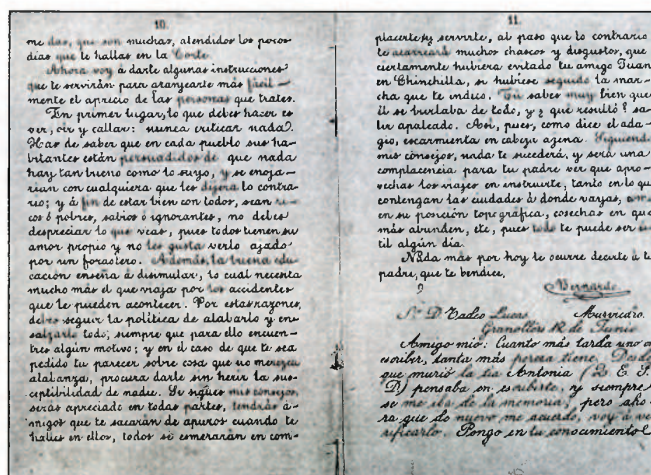 10.
me das, que son muchas, atendidos los pocos
dias que te hallas en la Corte.
Ahora voy á darte algunas instrucciones
que te servirán para grangearte más fácil-
mente el aprecio de las personas que trates.
En primer lugar, lo que debes hacer es
ver, oir y callar: nunca criticar nada.
Has de saber que en cada pueblo sus ha-
bitantes están persuadidos de que nada
hay tan bueno como lo suyo, y se enoja-
rian con cualquiera que les dijera lo contra-
rio; y á fin de estar bien con todos, sean ri-
cos ó pobres, sabios ó ignorantes, no debes
despreciar lo que veas, pues todos tienen su
amor propio y no les gusta verlo ajado
por un forastero. Además, la buena edu-
cación enseña á disimular, lo cual necesita
mucho más el que viaja por los accidentes
que le pueden acontecer. Por estas razones,
debes seguir la política de alabarlo y en-
salzarlo todo, siempre que para ello encuen-
tres algún motivo; y en el caso de que te sea
pedido tu parecer sobre cosa que no merezca
alabanza, procura darle sin herir la sus-
ceptibilidad de nadie. Si sigues mis consejos,
serás apreciado en todas partes, tendrás a-
migos que te sacarán de apuros cuando te
halles en ellos, todos se esmerarán en com-
11.
placerte y servirte, al paso que lo contrario
te acarreará muchos chascos y disgustos, que
ciertamente hubiera evitado tu amigo Juan
en Chinchilla, si hubiese seguido la mar-
cha que te indico. Tú sabes muy bien que
él se burlaba de todo, y ¿ qué resultó? sa-
lir apaleado. Así, pues, como dice el ada-
gio, escarmienta en cabeza agena. Siguiendo
mis consejos, nada te sucederá, y será una
complacencia para tu padre ver que apro-
vechas los viajes en instruirte, tanto en lo que
contengan las ciudades á donde vayas, como
en su posición topográfica, cosechas en que
más abunden, etc, pues todo te puede ser ú-
til algún día.
Nada más por hoy le ocurre decirte á tu
padre, que te bendice,
Bernardo
Sr. D. Tadeo Lucas Murviedro.
Granollers 12 de Junio
Amigo mio: Cuanto más tarda uno en
escribir, tanta más pereza tiene. Desde
que murió la tia Antonia (Q. E. G.
D) pensaba en escribirte, y siempre
se me iba de la memoria; pero aho-
ra que de nuevo me acuerdo, voy á ve-
rificarlo. Pongo en tu conocimiento